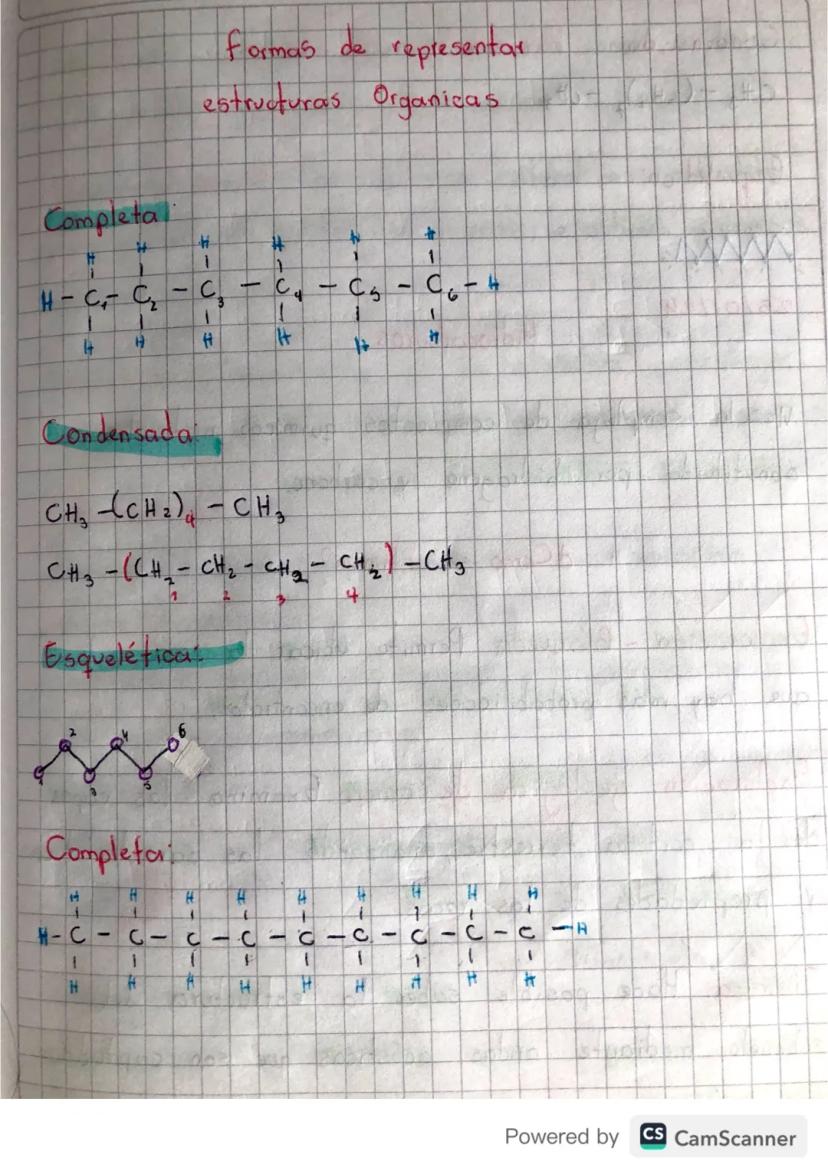 formas de representar
estructuras Organicas
Completa
H H H H H H
H - C1 - C2 - C3 - C4 - C5 - C6 - H
H H H H H H
Condensada:
CH3 -(CH2)4 - CH3
CH3 - (CH2 - CH2 - CH2 - CH2) - CH3
1 2 3 4
Esquelética:
2 4 6
1 3 5
Completa:
H H H H H H H H H
H - C - C - C - C - C - C - C - C - C - H
H H H H H H H H H
Powered by CS CamScanner